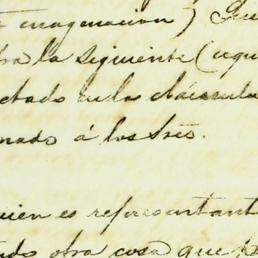 enagenacion) Que
bra la siguiente (aqui
ctado en la cláusula
nado á los Sres.
uien es representant
ndo otra cosa que p